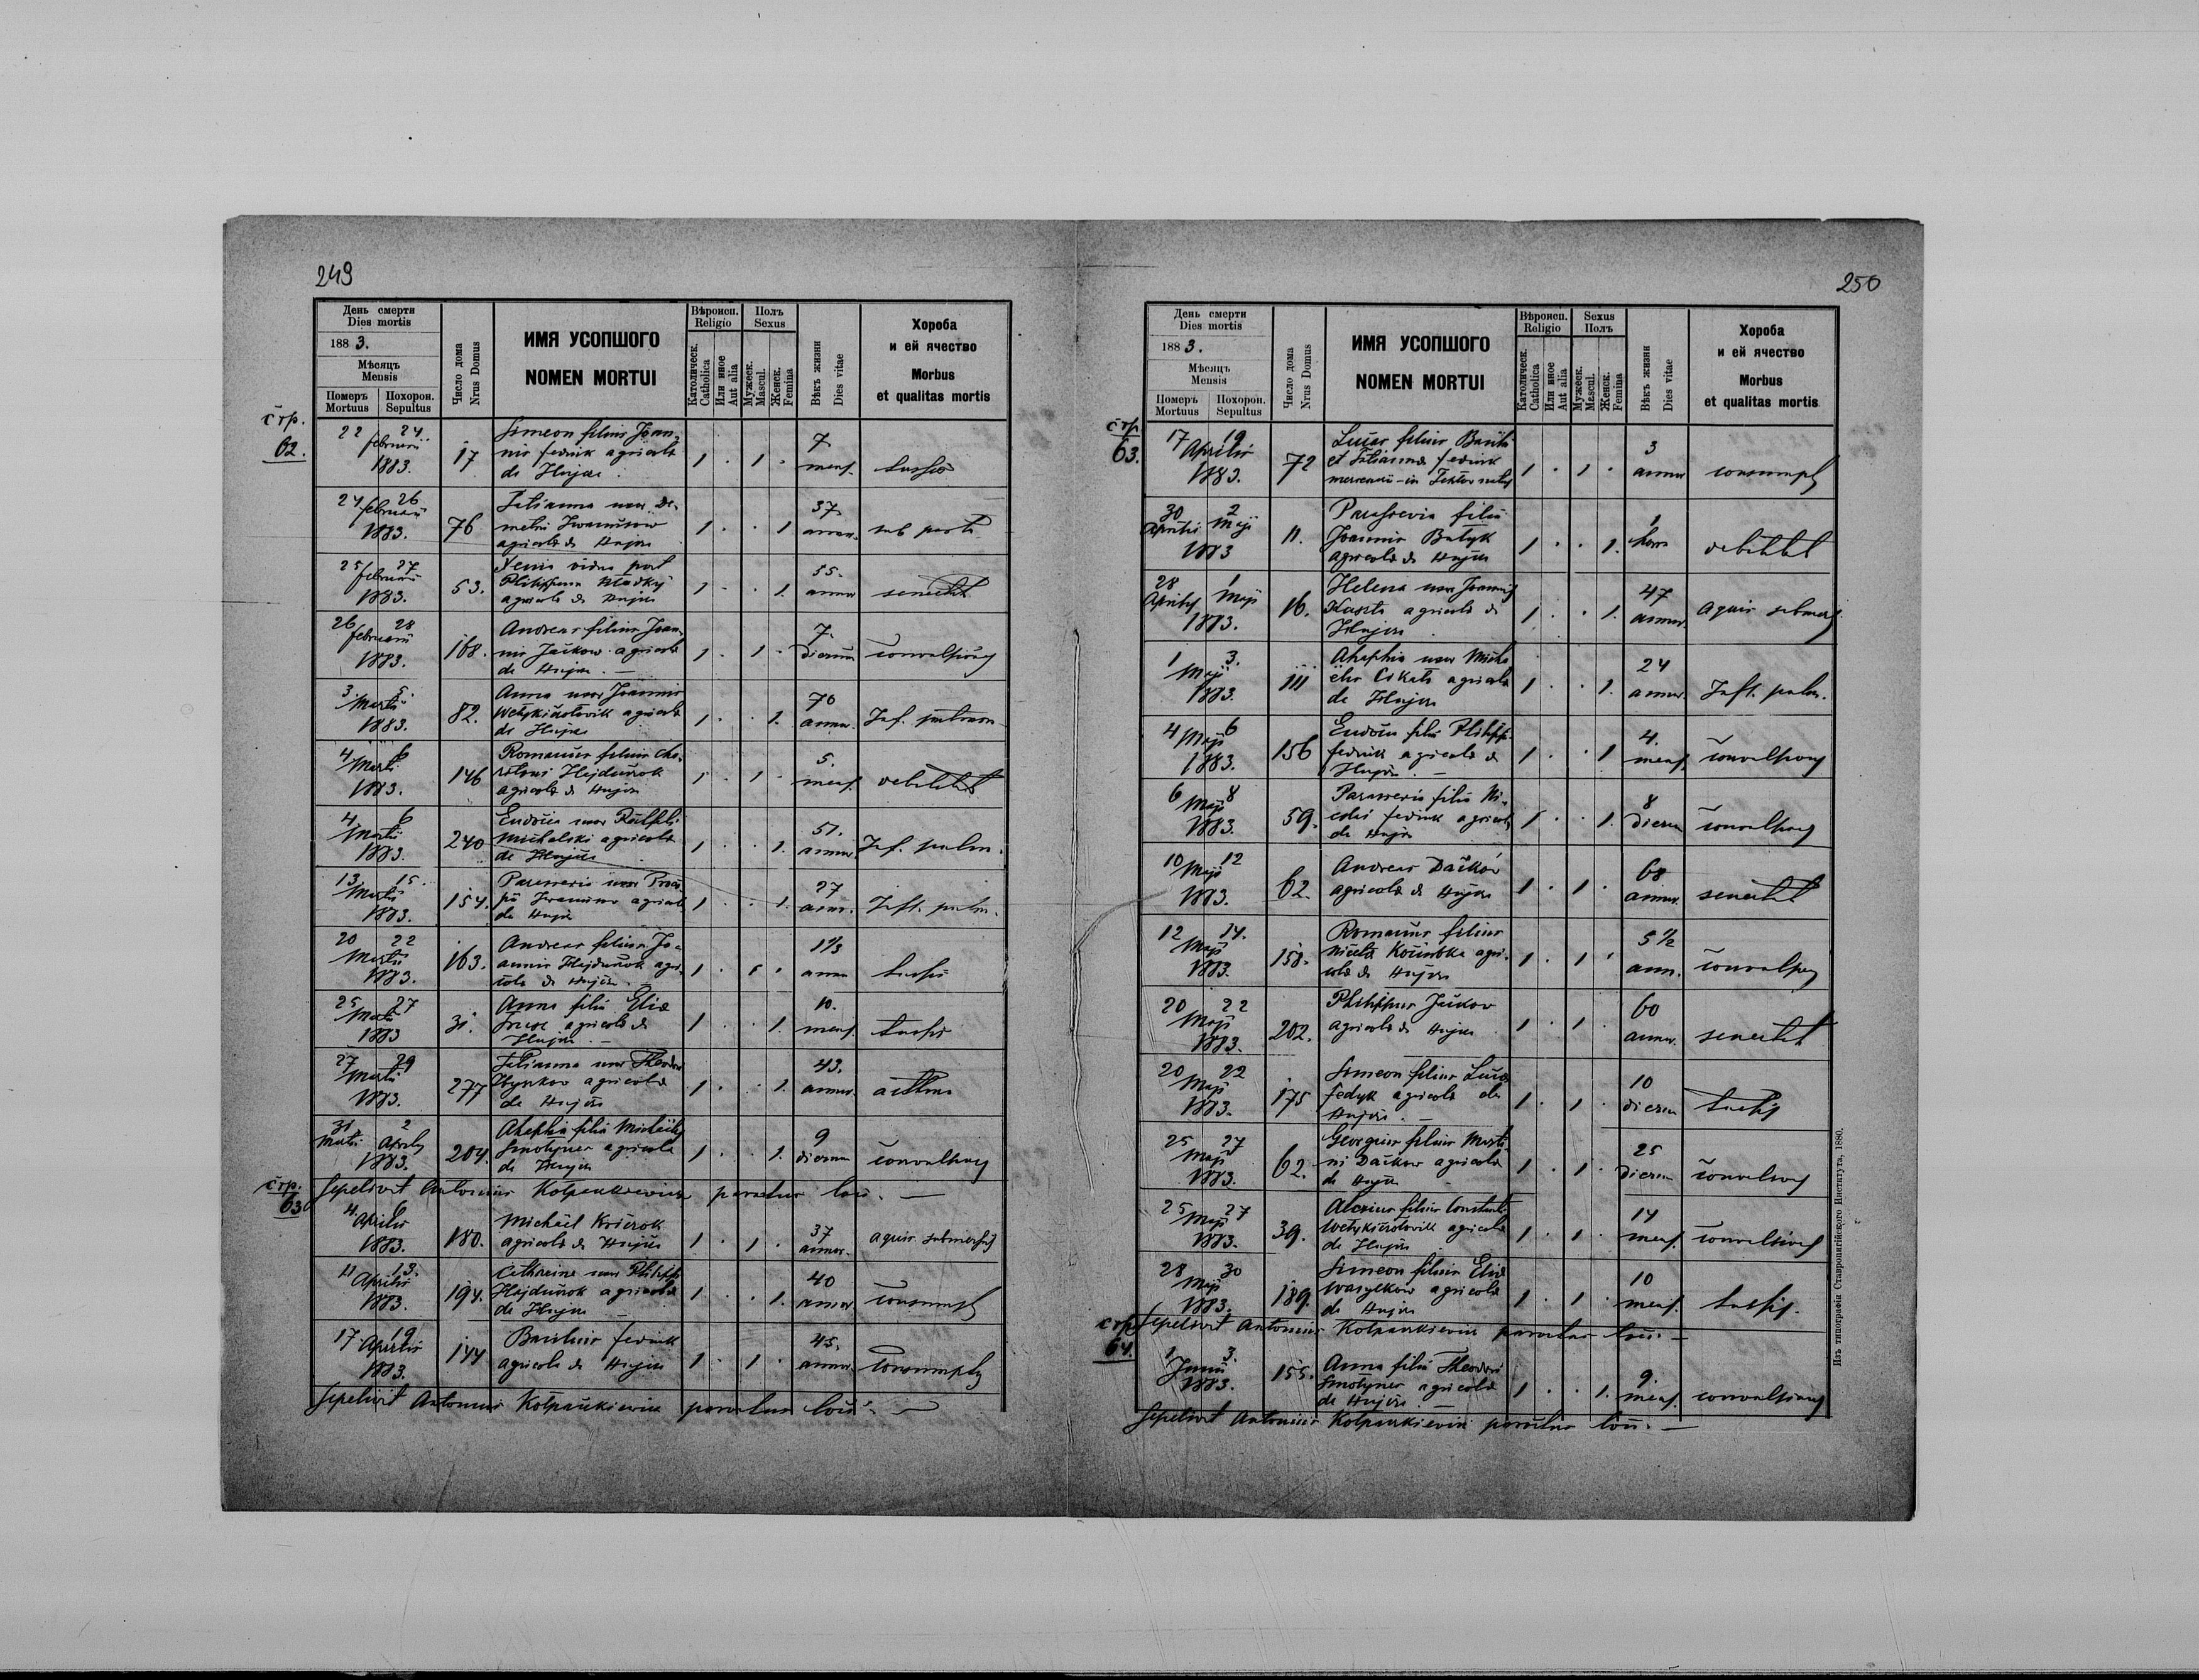 249
День смерти
Dies mortis
1883.
Мѣсяцъ
Mensis
Померъ
Mortuus
Похорон.
Sepultus
Число дома
Nrus Domus
ИМЯ УСОПШОГО
NOMEN MORTUI
Вѣроисп.
Religio
Католическ.
Catholica
Или иное
Aut alia
Полъ
Sexus
Мужеск.
Mascul.
Женск.
Femina
Вѣкъ жизни
Dies vitae
Хороба
и ей ячество
Morbus
et qualitas mortis
стр.
62.
22 24
februarii
1883.
17
Simeon filius Joan-
nis fedink agricola
de Hujcze
1 . 1 .
7
mens.
tussis
24 26
februarii
1883.
76
Tatianna uxor De-
metri
agricola de Hujcze
1 . . 1
37
annor.
sub partu
25 27
februarii
1883.
53.
Xenia vidua post
Philippum
agricola de Hujcze
1 . . 1.
55.
annor
senectus
26 28
februarii
1883.
168.
Andreas filius Joan-
nis Jačkow agricola
de Hujcze
1 . 1 .
7.
dierum
convulsiones
3. 5.
Martii
1883.
82.
Anna uxor Joannis
agricola
de Hujcze
1 . . 1.
70
annor.
Inf. pulmon.
4 6
Martii
1883.
146
Romanus filius Cha-
ritoni Hejdučok
agricola de Hujcze
1 . 1 .
5.
mens.
debilitas
4. 6
Martii
1883.
240
Eudocia uxor
Michalski agricola
de Hujcze
1 . . 1.
51.
annor.
Inf. pulm.
13. 15.
Martii
1883.
154.
Parascevia uxor
agricola
de Hujcze
1 . . 1.
27
annor.
Infl. pulm.
20 22
Martii
1883.
163.
Andreas filius Jo-
annis Hejdučok agri-
cola de Hujcze
1 . 1 .
1 1/3
anni
tussis
25 27
Martii
1883
31.
Anna filia Eliæ
agricola de
Hujcze
1 . . 1.
10.
mens.
tussis
27 29
Martii
1883.
277
Tatianna uxor Theodori
agricola
de Hujcze
1 . . 1.
43.
annor.
asthma
31 2
Martii Aprilis
1883.
204.
Ahaphia filia Michaëlis
Smotyner agricola
de Hujcze
1 . . 1.
9
dierum
convulsiones
Sepelivit Antonius Kolpaczkiewicz parochus loci. —
стр.
63
4. 6
Aprilis
1883.
180.
Michaël
agricola de Hujcze
1 . 1 .
37
annor.
aquis submersus
11 13.
Aprilis
1883.
194.
Catharina uxor Philippi
Hejdučok agricola
de Hujcze
1 . . 1.
40
annor
consumpt
17 19
Aprilis
1883.
144
Basilius fedink
agricola de Hujcze
1 . 1 .
45.
annor.
consumpt
Sepelivit Antonius Kolpaczkiewicz parochus loci. —
250
День смерти
Dies mortis
1883.
Мѣсяцъ
Mensis
Померъ
Mortuus
Похорон.
Sepultus
Число дома
Nrus Domus
ИМЯ УСОПШОГО
NOMEN MORTUI
Вѣроисп.
Religio
Католическ.
Catholica
Или иное
Aut alia
Sexus
Полъ
Мужеск.
Mascul.
Женск.
Femina
Вѣкъ жизни
Dies vitae
Хороба
и ей ячество
Morbus
et qualitas mortis
стр
63.
17 19
Aprilis
1883.
72
Lucas filius Basilii
et Tatianna fedink
mercenarii in
1 . 1 .
3
annor
consumpt
30 2
Aprilis Maji
1883
11.
Parascevia filia
Joannis Batyk
agricola de Hujcze
1 . . 1.
1
hora
debilitat
28 1
Aprilis Maji
1883.
16.
Helena uxor Joannis
agricola de
Hujcze
1 . . 1.
47
annor.
aquis submers.
1 3.
Maji
1883.
111
Ahaphia uxor Micha-
ëlis Cikalo agricola
de Hujcze
1 . . 1.
24
annor.
Infl. pulm.
4 6
Maji
1883.
156
Eudocia filia Philippi
fedink agricola de
Hujcze
1 . . 1
4.
mens.
convulsiones
6 8
Maji
1883.
59.
Parascevia filia Ni-
colai fedink agricola
de Hujcze
1 . . 1.
8
dierum
convulsiones
10 12
Maji
1883.
62.
Andreas Dačkow
agricola de Hujcze
1 . 1 .
68
annor.
senectus
12 14.
Maji
1883.
158.
Romanus filius
agri-
cola de Hujcze
1 . 1 .
5 1/2
ann.
convulsiones
20 22
Maji
1883.
202.
Philippus Jackow
agricola de Hujcze
1 . 1 .
60
annor.
senectus
20 22
Maji
1883.
175
Simeon filius Lucæ
fedyk agricola de
Hujcze.
1 . 1 .
10
dierum
tussis
25 27
Maji
1883.
62.
Georgius filius Marti-
ni Dačkow agricola
de Hujcze
1 . 1 .
25
dierum
convulsiones
25 27
Maji
1883.
39.
Alexius filius Constantini
agricola
de Hujcze
1 . 1 .
14
mens.
convulsiones
28 30
Maji
1883.
189.
Simeon filius Eliæ
Wasylkow agricola
de Hujcze
1 . 1 .
10
mens.
tussis.
Sepelivit Antonius Kolpaczkiewicz parochus loci. —
стр
64.
1 3.
Junii
1883.
155.
Anna filia Theodori
Smotyner agricola
de Hujcze.
1 . . 1.
9.
mens.
convulsiones
Sepelivit Antonius Kolpaczkiewicz parochus loci. —
Изъ типографіи Ставропигійского Института, 1880.